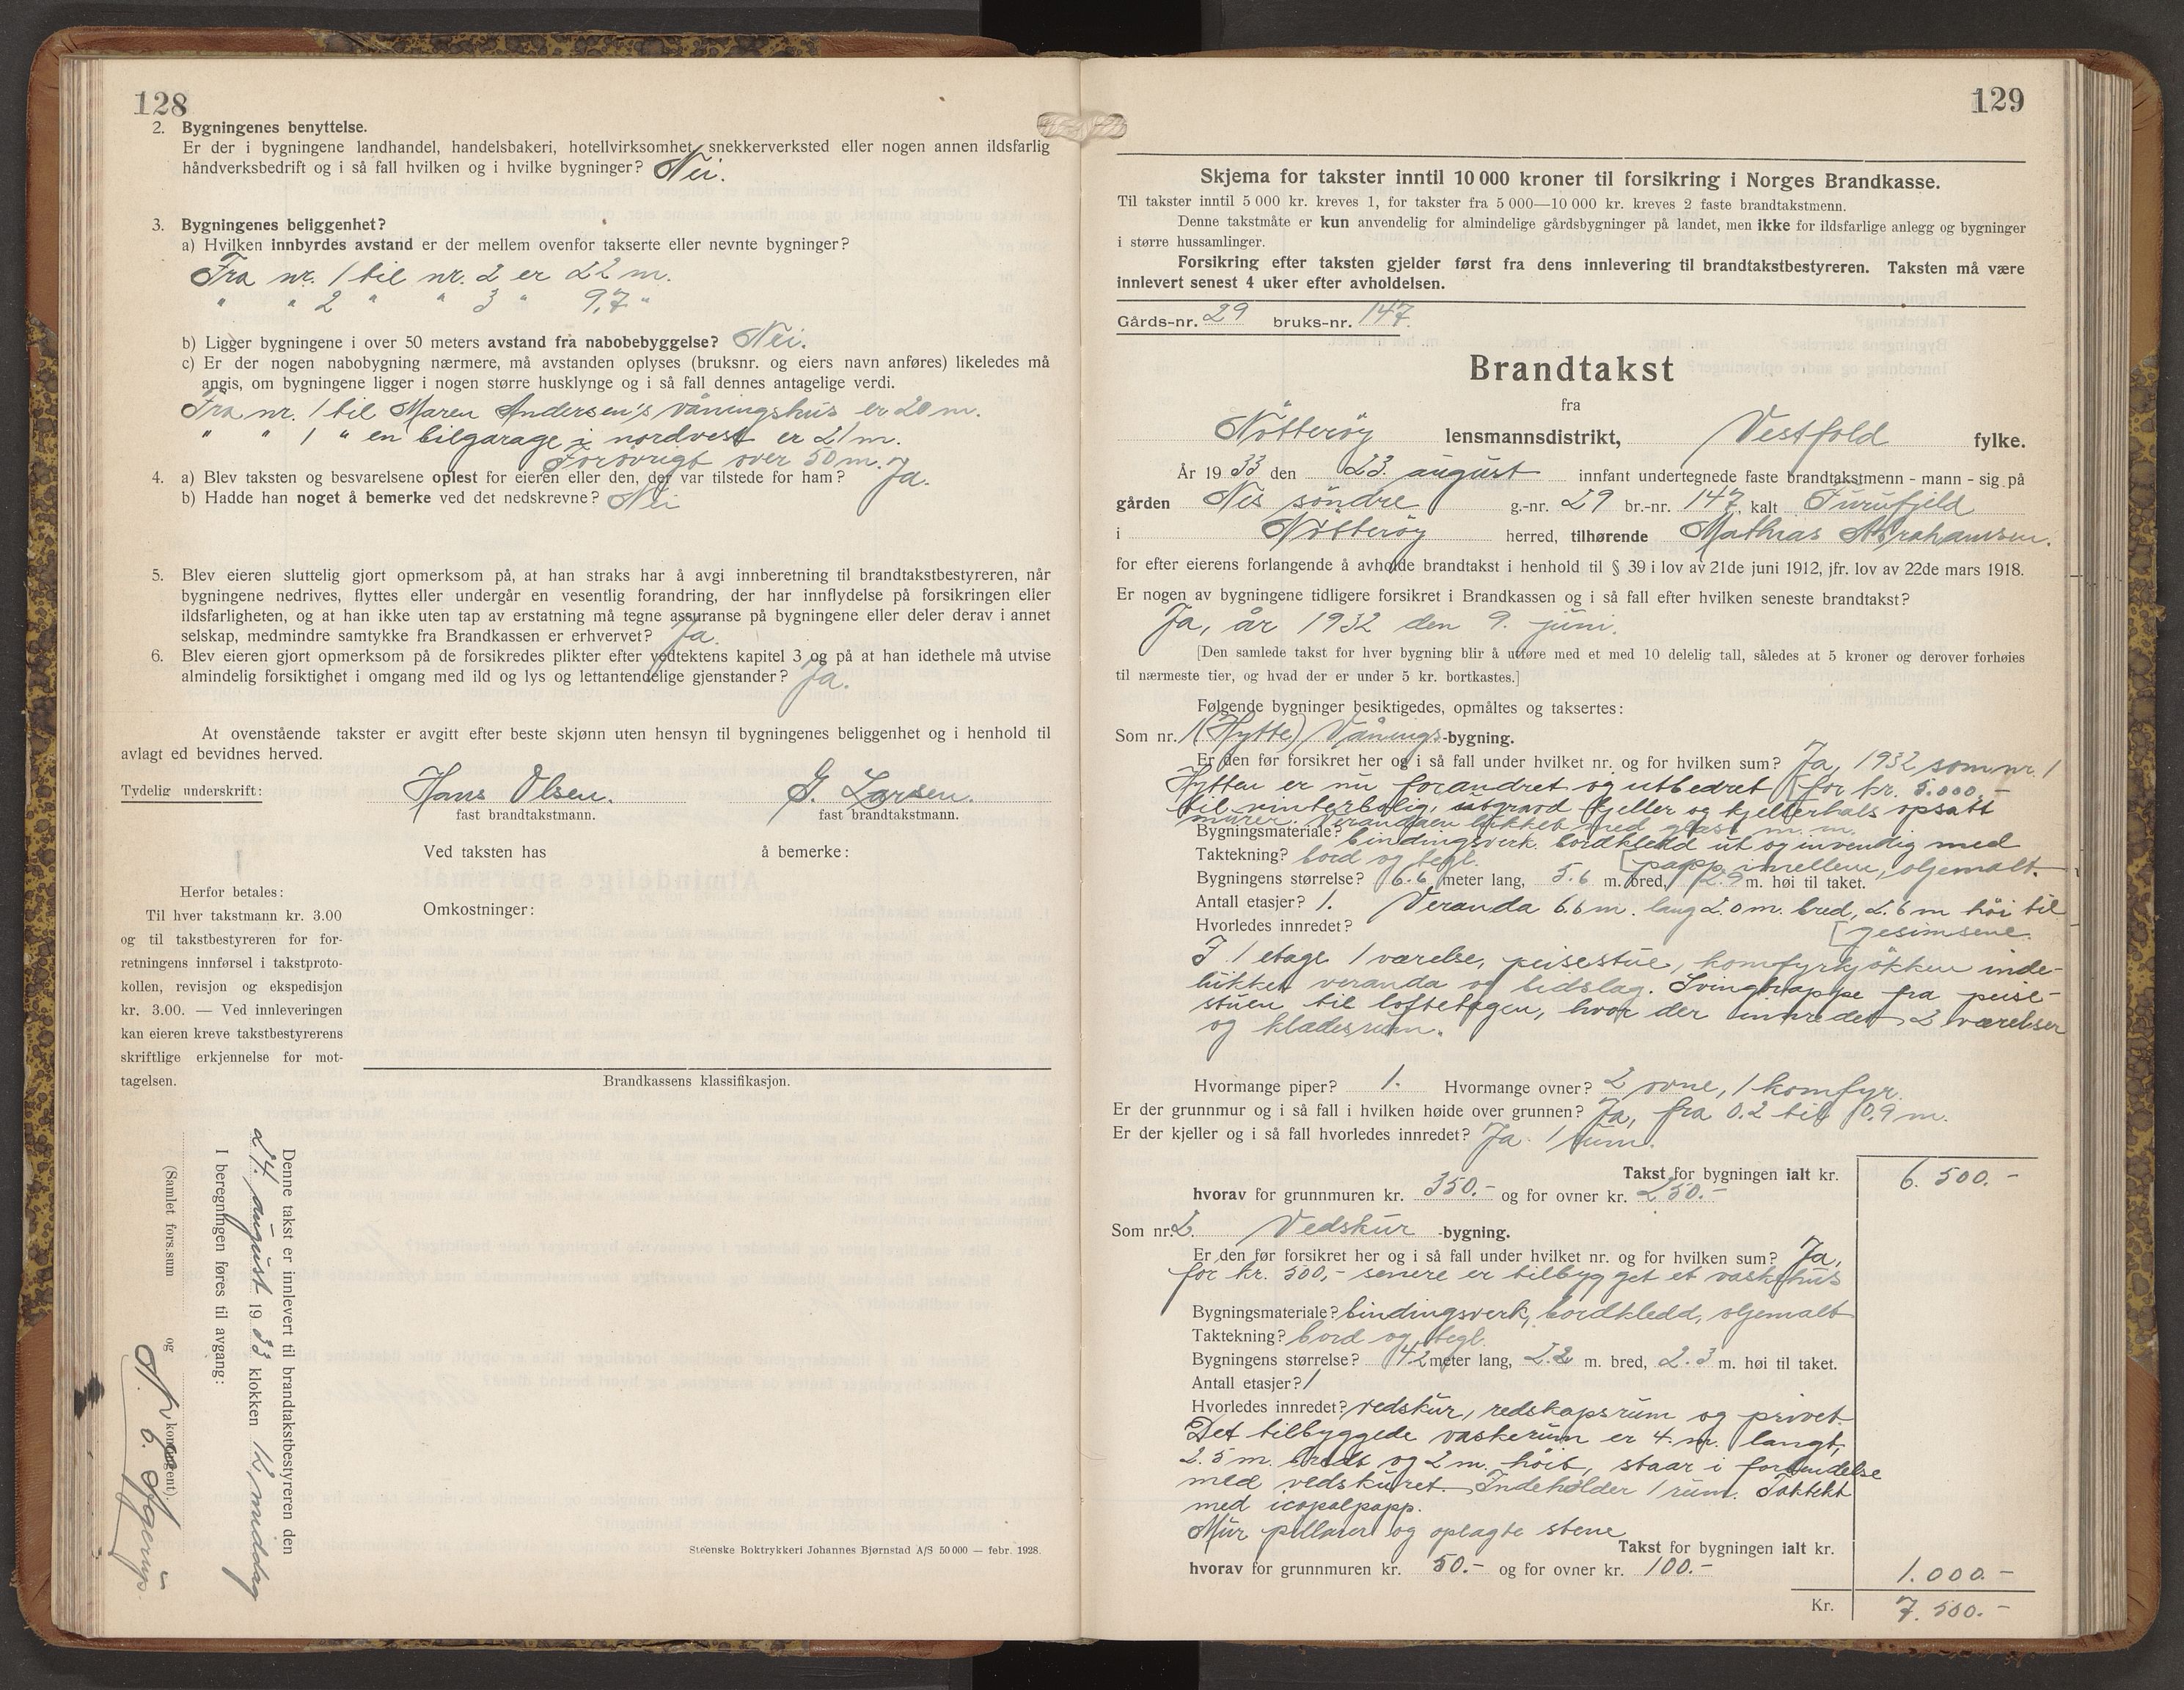 128
2. Bygningenes benyttelse.
Er der i bygningene landhandel, handelsbakeri, hotellvirksomhet, snekkerverksted eller nogen annen ildsfarlig
håndverksbedrift og i så fall hvilken og i hvilke bygninger? Nei.
3. Bygningenes beliggenhet?
a) Hvilken innbyrdes avstand er der mellem ovenfor takserte eller nevnte bygninger?
Fra nr. 1 til nr. 2 er 22 m.
" " 2 " " 3 " 9,7 "
b) Ligger bygningene i over 50 meters avstand fra nabobebyggelse? Nei.
c) Er der nogen nabobygning nærmere, må avstanden oplyses (bruksnr. og eiers navn anføres) likeledes må
angis, om bygningene ligger i nogen større husklynge og i så fall dennes antagelige verdi.
Fra nr. 1 til Maren Andersen's våningshus er 20 m.
" " 1 " en bilgarage i nordvest er 21 m.
Forøvrigt over 50 m.
4. a) Blev taksten og besvarelsene oplest for eieren eller den, der var tilstede for ham? Ja.
b) Hadde han noget å bemerke ved det nedskrevne? Nei
5. Blev eieren sluttelig gjort opmerksom på, at han straks har å avgi innberetning til brandtakstbestyreren, når
bygningene nedrives, flyttes eller undergår en vesentlig forandring, der har innflydelse på forsikringen eller
ildsfarligheten, og at han ikke uten tap av erstatning må tegne assuranse på bygningene eller deler derav i annet
selskap, medmindre samtykke fra Brandkassen er erhvervet? Ja.
6. Blev eieren gjort opmerksom på de forsikredes plikter efter vedtektens kapitel 3 og på at han idethele må utvise
almindelig forsiktighet i omgang med ild og lys og lettantendelige gjenstander? Ja.
At ovenstående takster er avgitt efter beste skjønn uten hensyn til bygningenes beliggenhet og i henhold til
avlagt ed bevidnes herved.
Tydelig underskrift: Hans Olsen. G. Larsen.
fast brandtakstmann. fast brandtakstmann.
Ved taksten has å bemerke:
Omkostninger:
Herfor betales:
Til hver takstmann kr. 3.00
og til takstbestyreren for for-
retningens innførsel i takstproto-
kollen, revisjon og ekspedisjon
kr. 3.00. — Ved innleveringen
kan eieren kreve takstbestyrerens
skriftlige erkjennelse for mot-
tagelsen.
Brandkassens klassifikasjon.
Denne takst er innlevert til brandtakstbestyreren den
24. august 1933 klokken 12 middag
I beregningen føres til avgang:
(Samlet fors.sum og kontingent).
Steenske Boktrykkeri Johannes Bjørnstad A/S 50 000 — febr. 1928.
129
Skjema for takster inntil 10 000 kroner til forsikring i Norges Brandkasse.
Til takster inntil 5 000 kr. kreves 1, for takster fra 5 000—10 000 kr. kreves 2 faste brandtakstmenn.
Denne takstmåte er kun anvendelig for almindelige gårdsbygninger på landet, men ikke for ildsfarlige anlegg og bygninger
i større hussamlinger.
Forsikring efter taksten gjelder først fra dens innlevering til brandtakstbestyreren. Taksten må være
innlevert senest 4 uker efter avholdelsen.
Gårds-nr. 29 bruks-nr. 147.
Brandtakst
fra
Nøtterøy lensmannsdistrikt, Vestfold fylke.
År 1933 den 23. august innfant undertegnede faste brandtakstmenn - mann - sig på
gården Nes søndre g.-nr. 29 br.-nr. 147, kalt Furufjeld
i Nøtterøy herred, tilhørende Mathias Abrahamsen.
for efter eierens forlangende å avholde brandtakst i henhold til § 39 i lov av 21de juni 1912, jfr. lov av 22de mars 1918.
Er nogen av bygningene tidligere forsikret i Brandkassen og i så fall efter hvilken seneste brandtakst?
Ja, år 1932 den 9. juni.
[Den samlede takst for hver bygning blir å utføre med et med 10 delelig tall, således at 5 kroner og derover forhøies
til nærmeste tier, og hvad der er under 5 kr. bortkastes.]
Følgende bygninger besiktigedes, opmåltes og taksertes:
Som nr. 1 (Hytte) Vånings-bygning.
Er den før forsikret her og i så fall under hvilket nr. og for hvilken sum? Ja, 1932 som nr. 1
Hytten er nu forandret og utbedret [for kr. 5.000.-
til vinterbolig, utgravd kjeller og kjellerhals opsatt
murer. Verandaen lukket med glass m. m.
Bygningsmateriale? bindingsverk. bordkledd ut og invendig med
Taktekning? bord og tegl. [papp imellem, oljemalt.
Bygningens størrelse? 6.6 meter lang, 5.6 m. bred, 2.9 m. høi til taket.
Antall etasjer? 1. Veranda 6.6 m. lang 2.0 m. bred, 2.6 m høi til
Hvorledes innredet? [gesimsene.
I 1 etage 1 værelse, peisestue, komfyrkjøkken inde-
lukket veranda og bedslag. Svingtrappe fra peise-
stuen til loftetagen, hvor der innredet 2 værelser
og kladesrum.
Hvormange piper? 1. Hvormange ovner? 2 ovne, 1 komfyr.
Er der grunnmur og i så fall i hvilken høide over grunnen? Ja, fra 0.2 til 0.9 m.
Er der kjeller og i så fall hvorledes innredet? Ja. 1 rum.
Takst for bygningen ialt kr. 6.500.-
hvorav for grunnmuren kr. 350.- og for ovner kr. 250.-
Som nr. 2. Vedskur -bygning.
Er den før forsikret her og i så fall under hvilket nr. og for hvilken sum? Ja,
for kr. 500,- senere er tilbygget et vaskehus
Bygningsmateriale? bindingsverk, bordkledd, oljemalt
Taktekning? bord og tegl.
Bygningens størrelse? 4.2 meter lang, 2.2 m. bred, 2.3 m. høi til taket.
Antall etasjer? 1
Hvorledes innredet? vedskur, redskapsrum og privet.
Det tilbyggede vaskerum er 4. m. langt,
2.5 m. bredt og 2 m. høit, staar i forbindelse
med vedskuret. Indeholder 1 rum. Taktekt
med icopalpapp.
Mur pillarer og oplagte stene
Takst for bygningen ialt kr.
hvorav for grunnmuren kr. 50.- og for ovner kr. 100.- 1.000.-
Kr. 7.500.-